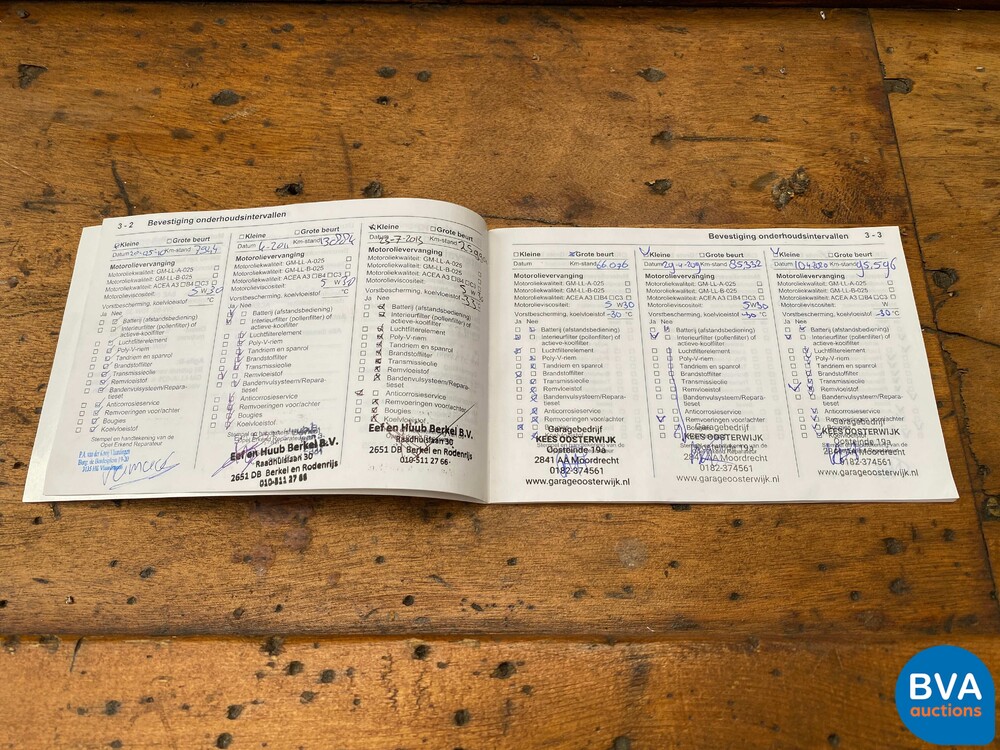 3 - 2 Bevestiging onderhoudsintervallen
Kleine Grote beurt
Datum Km-stand
Motorolievervanging
Motoroliekwaliteit: GM-LL-A-025
Motoroliekwaliteit: GM-LL-B-025
Motoroliekwaliteit: ACEA A3 B4 C3
Motorolieviscositeit: 5 W 30
Vorstbescherming, koelvloeistof °C
Ja Nee
Batterij (afstandsbediening)
Interieurfilter (pollenfilter) of
actieve-koolfilter
Luchtfilterelement
Poly-V-riem
Tandriem en spanrol
Brandstoffilter
Transmissieolie
Remvloeistof
Bandenvulsysteem/Repara-
tieset
Anticorrosieservice
Remvoeringen voor/achter
Bougies
Koelvloeistof
Stempel en handtekening van de
Opel Erkend Reparateur
Kleine Grote beurt
Datum 4-2011 Km-stand
Motorolievervanging
Motoroliekwaliteit: GM-LL-A-025
Motoroliekwaliteit: GM-LL-B-025
Motoroliekwaliteit: ACEA A3 B4 C3
Motorolieviscositeit: 5 W 30
Vorstbescherming, koelvloeistof °C
Ja Nee
Batterij (afstandsbediening)
Interieurfilter (pollenfilter) of
actieve-koolfilter
Luchtfilterelement
Poly-V-riem
Tandriem en spanrol
Brandstoffilter
Transmissieolie
Remvloeistof
Bandenvulsysteem/Repara-
tieset
Anticorrosieservice
Remvoeringen voor/achter
Bougies
Koelvloeistof
Eef en Huub Berkel B.V.
Raadhuislaan 30
2651 DB Berkel en Rodenrijs
010-511 27 66
Kleine Grote beurt
Datum 23-7-2013 Km-stand
Motorolievervanging
Motoroliekwaliteit: GM-LL-A-025
Motoroliekwaliteit: GM-LL-B-025
Motoroliekwaliteit: ACEA A3 B4 C3
Motorolieviscositeit: 5 W 30
Vorstbescherming, koelvloeistof
Ja Nee
Batterij (afstandsbediening)
Interieurfilter (pollenfilter) of
actieve-koolfilter
Luchtfilterelement
Poly-V-riem
Tandriem en spanrol
Brandstoffilter
Transmissieolie
Remvloeistof
Bandenvulsysteem/Repara-
tieset
Anticorrosieservice
Remvoeringen voor/achter
Bougies
Koelvloeistof
Eef en Huub Berkel B.V.
Raadhuislaan 30
2651 DB Berkel en Rodenrijs
010-511 27 66
Bevestiging onderhoudsintervallen 3 - 3
Kleine Grote beurt
Datum Km-stand 66076
Motorolievervanging
Motoroliekwaliteit: GM-LL-A-025
Motoroliekwaliteit: GM-LL-B-025
Motoroliekwaliteit: ACEA A3 B4 C3
Motorolieviscositeit: 5 W 30
Vorstbescherming, koelvloeistof -30 °C
Ja Nee
Batterij (afstandsbediening)
Interieurfilter (pollenfilter) of
actieve-koolfilter
Luchtfilterelement
Poly-V-riem
Tandriem en spanrol
Brandstoffilter
Transmissieolie
Remvloeistof
Bandenvulsysteem/Repara-
tieset
Anticorrosieservice
Remvoeringen voor/achter
Garagebedrijf
KEES OOSTERWIJK
Oosteinde 19a
2841 AA Moordrecht
0182-374561
www.garageoosterwijk.nl
Kleine Grote beurt
Datum Km-stand 85352
Motorolievervanging
Motoroliekwaliteit: GM-LL-A-025
Motoroliekwaliteit: GM-LL-B-025
Motoroliekwaliteit: ACEA A3 B4 C3
Motorolieviscositeit: 5 W 30
Vorstbescherming, koelvloeistof -30 °C
Ja Nee
Batterij (afstandsbediening)
Interieurfilter (pollenfilter) of
actieve-koolfilter
Luchtfilterelement
Poly-V-riem
Tandriem en spanrol
Brandstoffilter
Transmissieolie
Remvloeistof
Bandenvulsysteem/Repara-
tieset
Anticorrosieservice
Remvoeringen voor/achter
Garagebedrijf
KEES OOSTERWIJK
Oosteinde 19a
2841 AA Moordrecht
0182-374561
www.garageoosterwijk.nl
Kleine Grote beurt
Datum Km-stand 95.596
Motorolievervanging
Motoroliekwaliteit: GM-LL-A-025
Motoroliekwaliteit: GM-LL-B-025
Motoroliekwaliteit: ACEA A3 B4 C3
Motorolieviscositeit: W
Vorstbescherming, koelvloeistof -30 °C
Ja Nee
Batterij (afstandsbediening)
Interieurfilter (pollenfilter) of
actieve-koolfilter
Luchtfilterelement
Poly-V-riem
Tandriem en spanrol
Brandstoffilter
Transmissieolie
Remvloeistof
Bandenvulsysteem/Repara-
tieset
Anticorrosieservice
Remvoeringen voor/achter
Garagebedrijf
KEES OOSTERWIJK
Oosteinde 19a
2841 AA Moordrecht
0182-374561
www.garageoosterwijk.nl
BVA
auctions